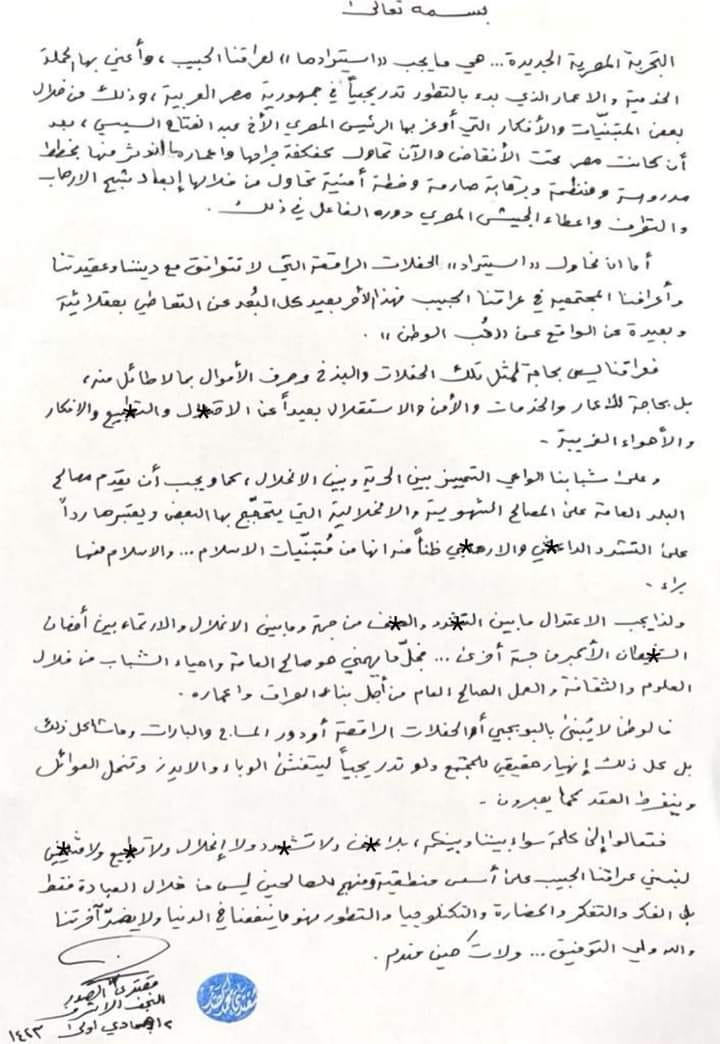 بسمه تعالى
التجربة المصرية الجديدة... هي ما يجب ((استيرادها)) لعراقنا الحبيب، وأعني بها الحملة
الخدمية والاعمار الذي بدء بالتطور تدريجياً في جمهورية مصر العربية، وذلك من خلال
بعض المتبنّيات والأفكار التي أوعز بها الرئيس المصري الأخ عبد الفتاح السيسي، بعد
أن كانت مصر تحت الأنقاض والآن تحاول كفكفة جراحها واعمار ما اندثر منها بخطط
مدروسة ومنظمة وبرقابة صارمة وخطة أمنية تحاول من خلالها إبعاد شبح الارهاب
والتطرف واعطاء الجيش المصري دوره الفاعل في ذلك.
أما ان نحاول ((استيراد)) الحفلات الراقصة التي لا تتوافق مع ديننا وعقيدتنا
وأعرافنا المجتمعية في عراقنا الحبيب فهذا الأمر بعيد كل البُعد عن التعاطي بعقلائية
وبعيدة عن الواقع عن ((حُب الوطن)).
فعراقنا ليس بحاجة لمثل تلك الحفلات والبذخ وصرف الأموال بما لا طائل منه،
بل بحاجة للاعمار والخدمات والأمن والاستقلال بعيداً عن الاحـ*ـلال والتـ*ـبيع والافكار
والأهواء الغريبة -
وعلى شبابنا الواعي التمييز بين الحرية وبين الانحلال، كما ويجب أن يقدم مصالح
البلد العامة على المصالح الشهوية والانحلالية التي يتحجّج بها البعض ويعتبرها رداً
على التشدد الداعـ*ـي والارهـ*ـبي ظناً منه انها من مُتبنّيات الاسلام... والاسلام منها
براء -
ولذا يجب الاعتدال ما بين التـ*ـدد والعـ*ـف من جهة وما بين الانحلال والارتماء بين أحضان
الشـ*ـطان الأكبر من جهة أخرى... مجملّ ما يهمني هو صالح العامة واحياء الشباب من خلال
العلوم والثقافة والعمل الصالح العام من أجل بناء العراق واعماره.
فالوطن لا يُبنى بالبوبجي أو الحفلات الراقصة أو دور المساج والبارات وما شاكل ذلك
بل كل ذلك إنهيار حقيقي للمجتمع ولو تدريجياً ليتفشى الوباء والايدز وتنحل العوائل
وينفرط العقد كما يعبرون -
فتعالوا إلى كلمة سواء بيننا وبينكم، بلا عـ*ـف ولا تشـ*ـدد ولا إنحلال ولا تطـ*ـيع ولا
لنبني عراقنا الحبيب على أسس منطقية ومنهج للصالحين ليس من خلال العبادة فقط
بل الفكر والتفكر والحضارة والتكنلوجيا والتطور مهو ما ينفعنا في الدنيا ولا يضرّ آخرتنا
والله ولي التوفيق... ولات حين مندم.
مقتدى الصدر
النجف الاشرف
٢ جمادي أولى ١٤٤٣